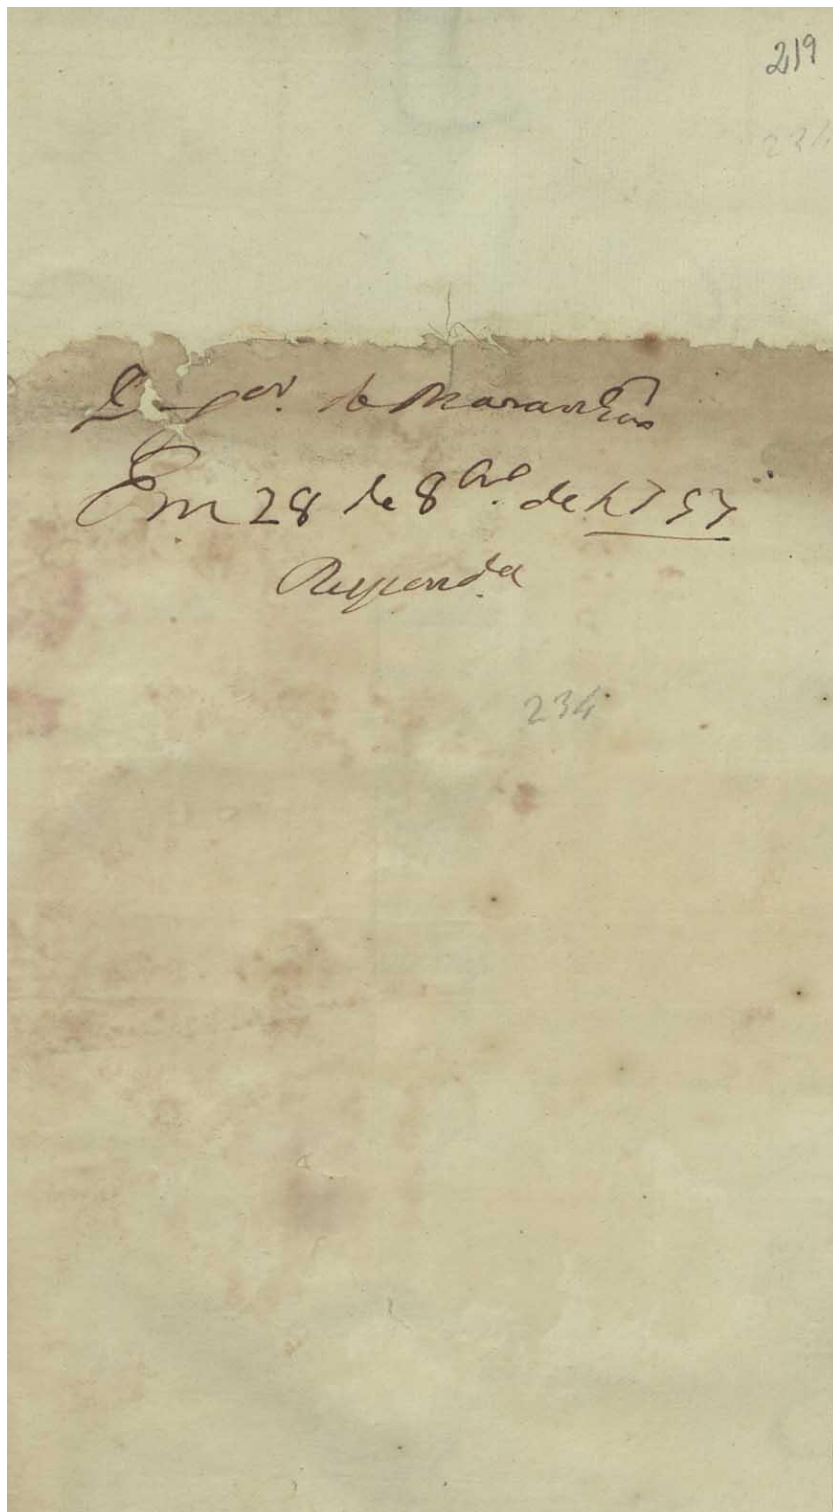 219
234
de Maranhão
Em 28 de 8bro. de 1757
Responda
234